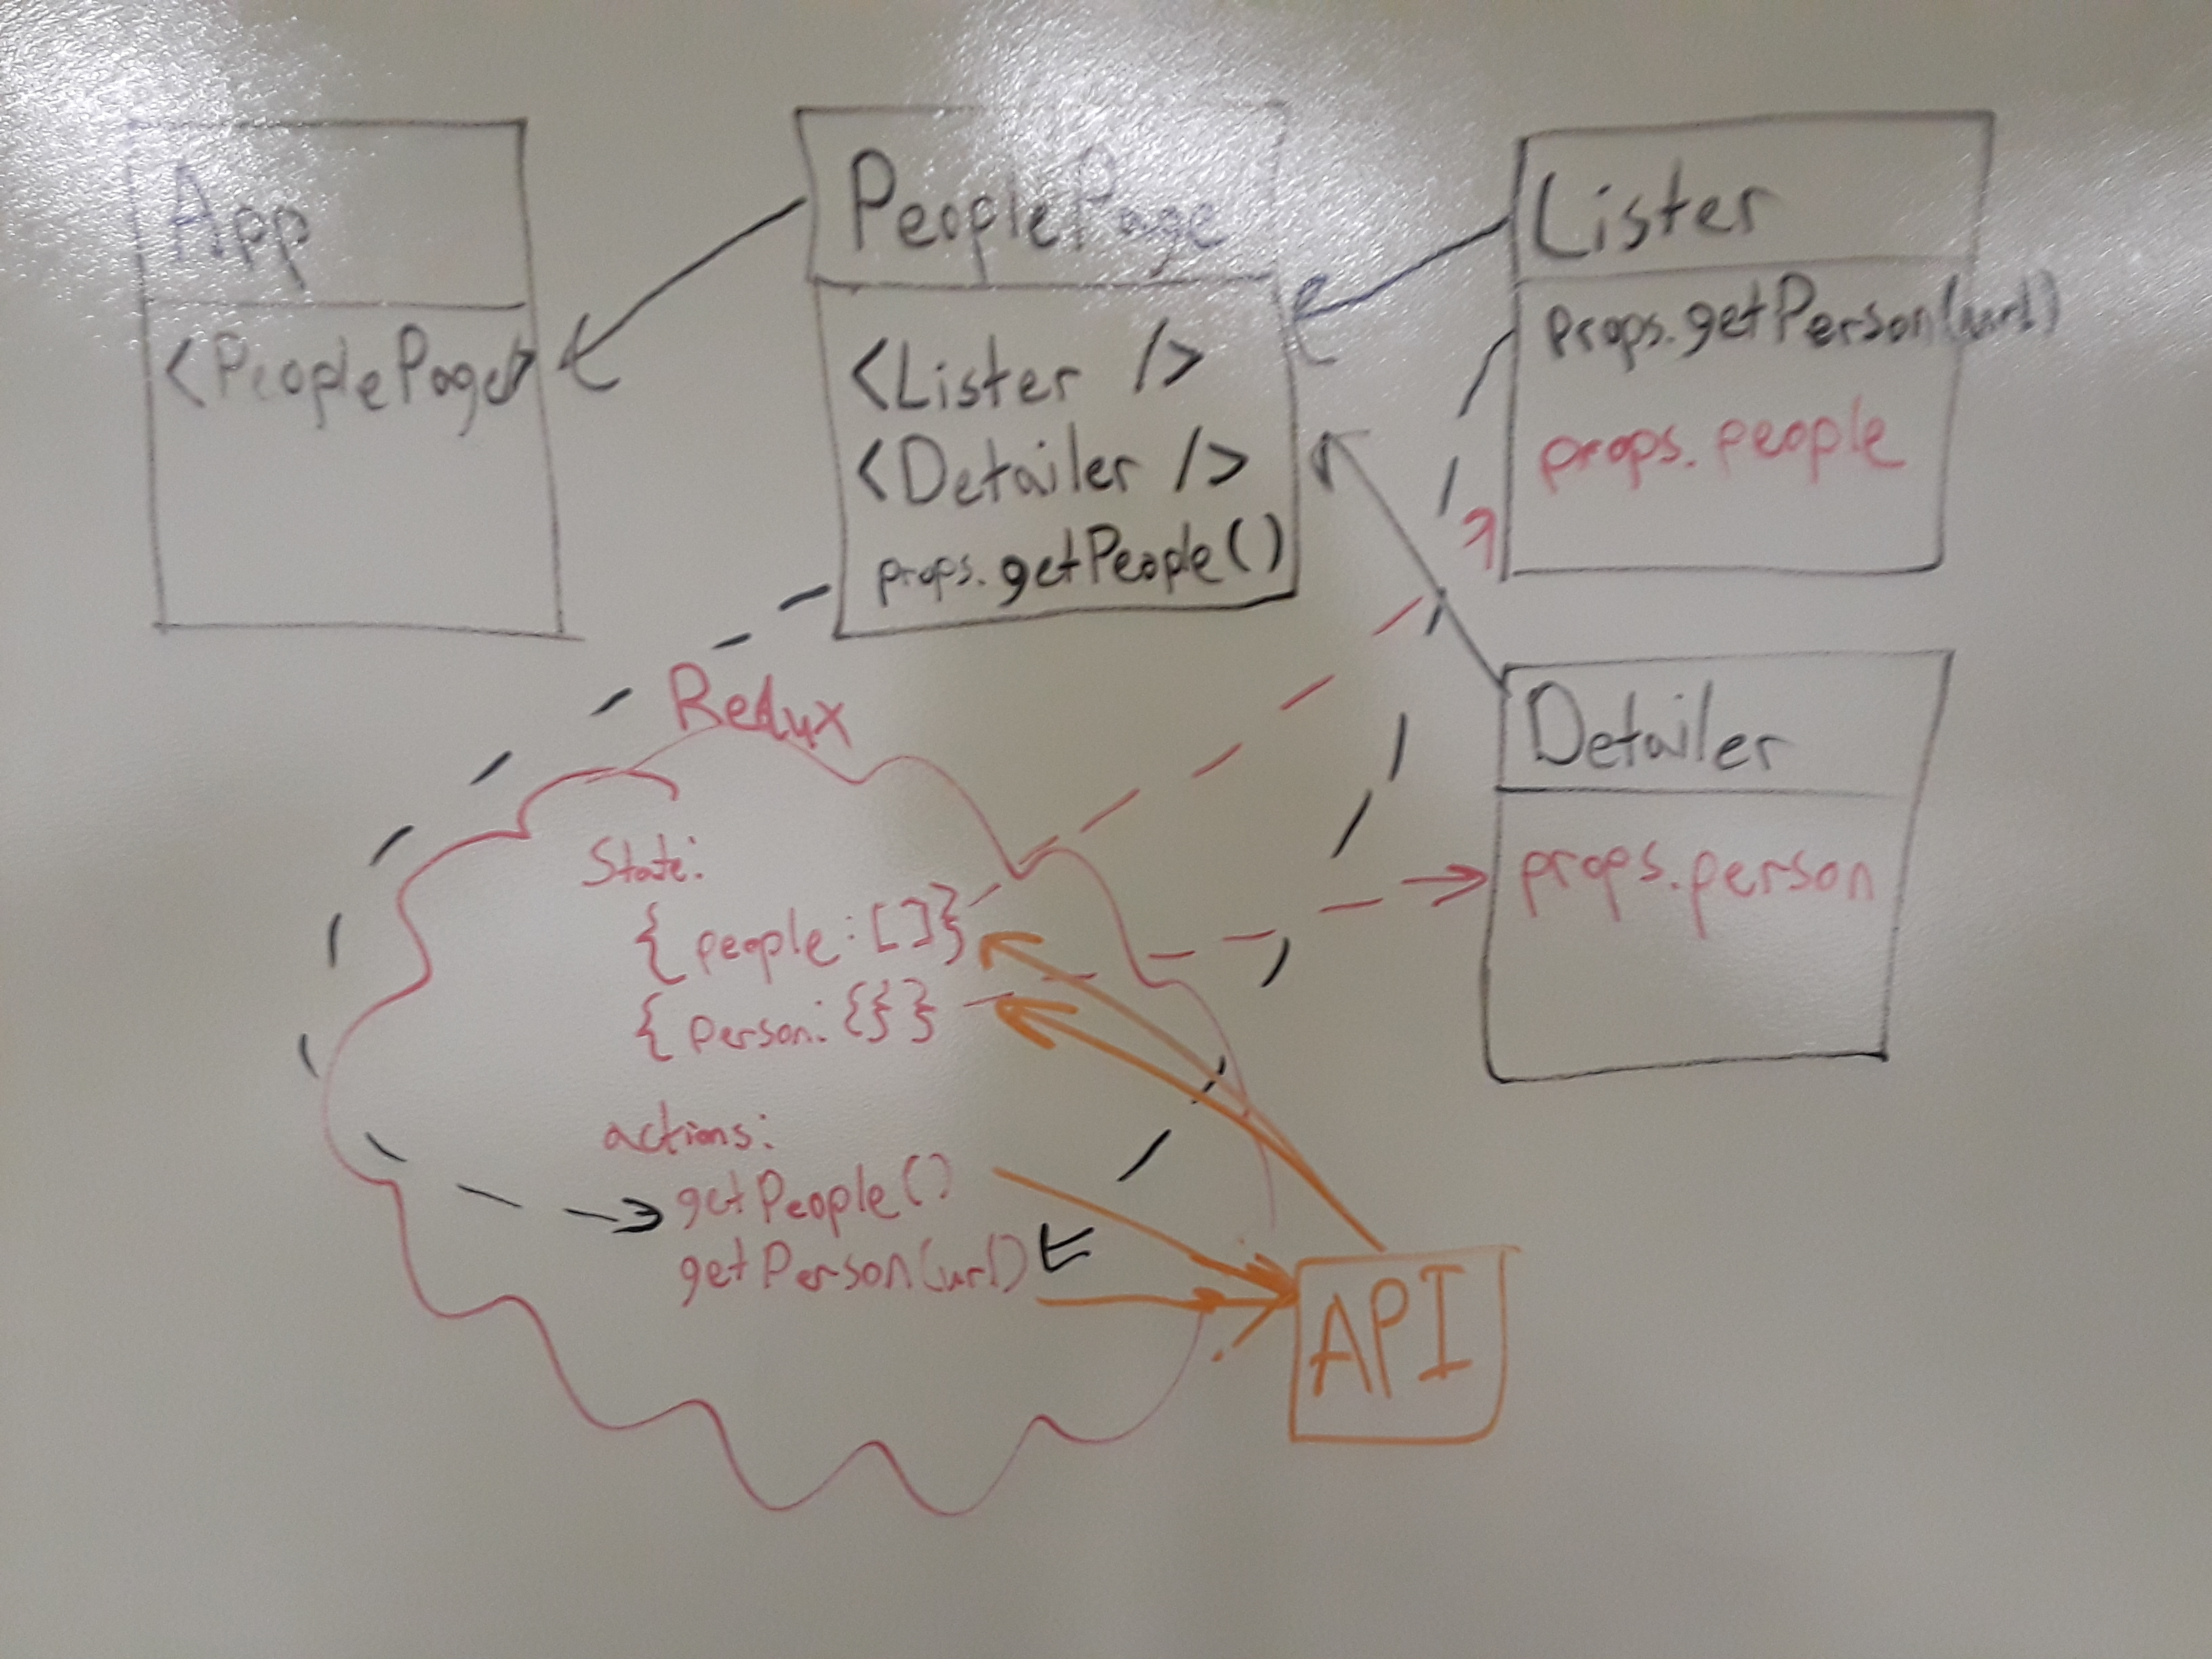 App
<PeoplePage>
PeoplePage
<Lister />
<Detailer />
props.getPeople()
Lister
props.getPerson(url)
props.people
Detailer
props.person
Redux
State:
{ people: []}
{ person: {}}
actions:
getPeople()
getPerson(url)
API